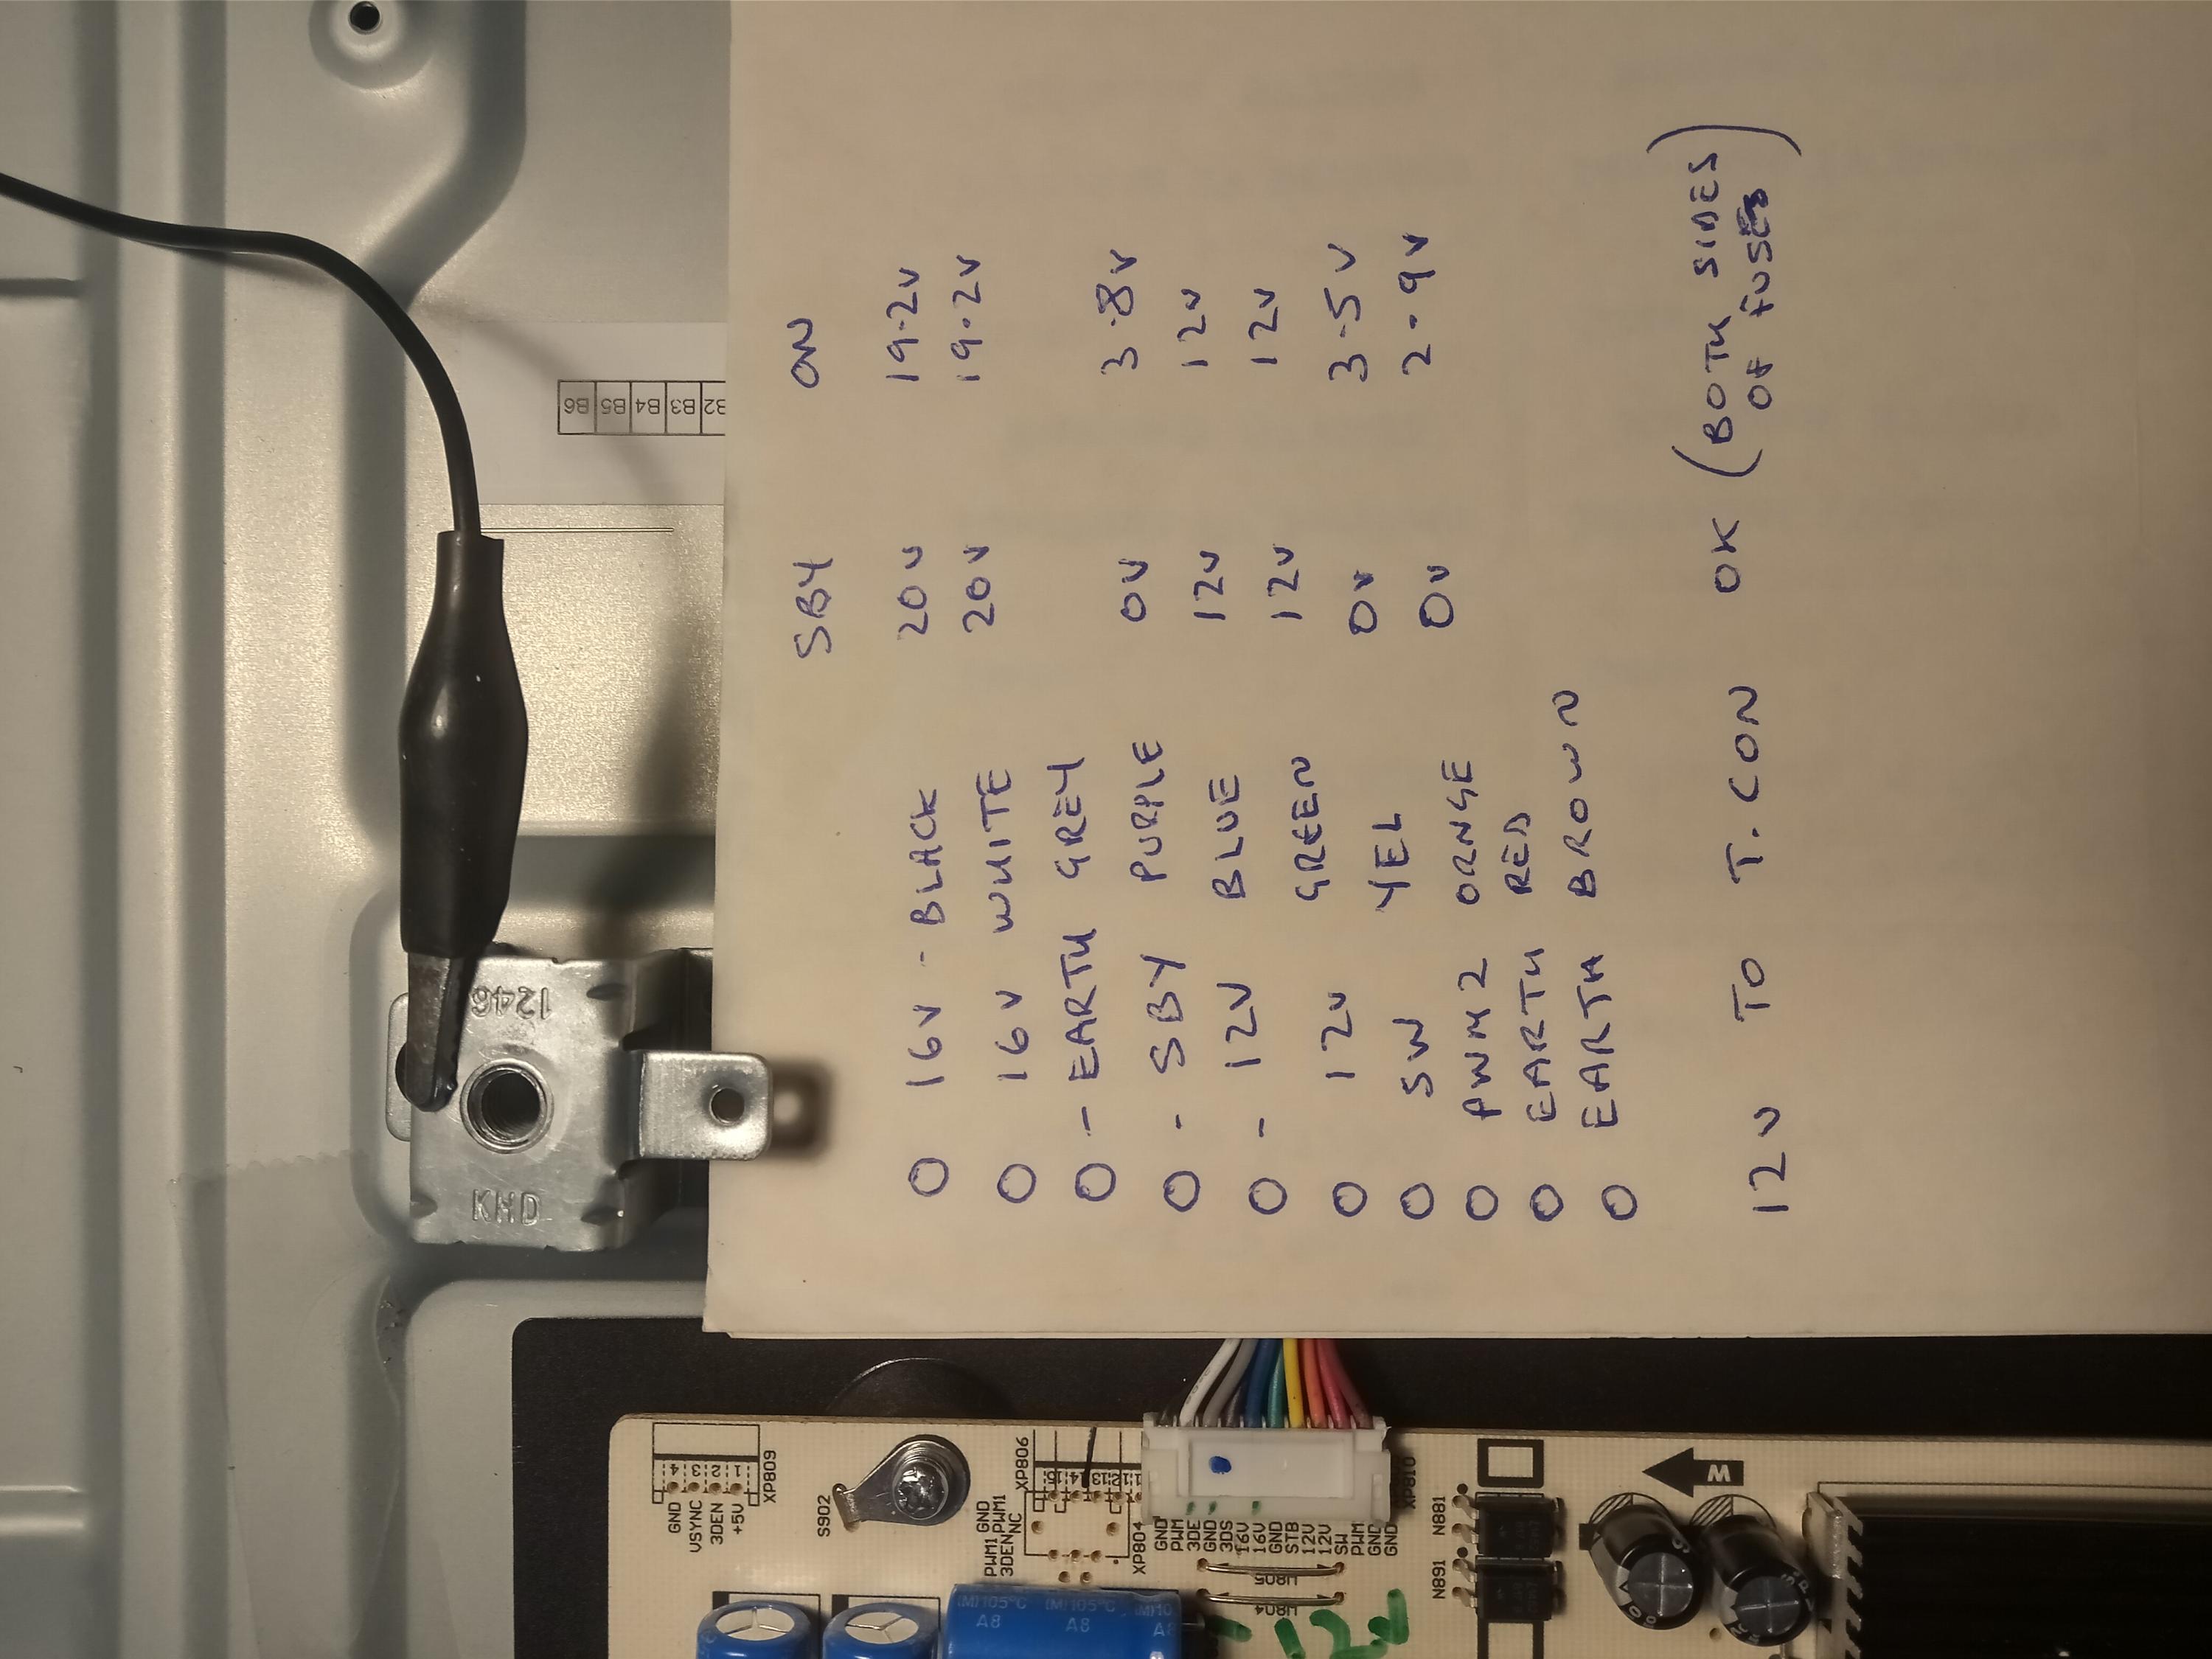 SBY ON
O 16V - BLACK 20V 19.2V
O 16V WHITE 20V 19.2V
O - EARTH GREY
O - SBY PURPLE 0V 3.8V
O - 12V BLUE 12V 12V
O 12V GREEN 12V 12V
O SW YEL 0V 3.5V
O PWM2 ORNGE 0V 2.9V
O EARTH RED
O EARTH BROWN
12V TO T.CON OK (BOTH SIDES
OF FUSES)
B6 B5 B4 B3
1246
KHD
GND 4
VSYNC 3
3DEN 2
+5V 1
XP809
S902
XP806
15 14 13 12
PWM1 GND
3DEN PWM1
NC
XP804
GND
PWM
3DE
GND
3DS
16V
16V
GND
STB
12V
12V
SW
PWM
GND
GND
XP810
U805
U804
N881
N891
W
(M)105°C
A8
(M)105°C
A8
A8